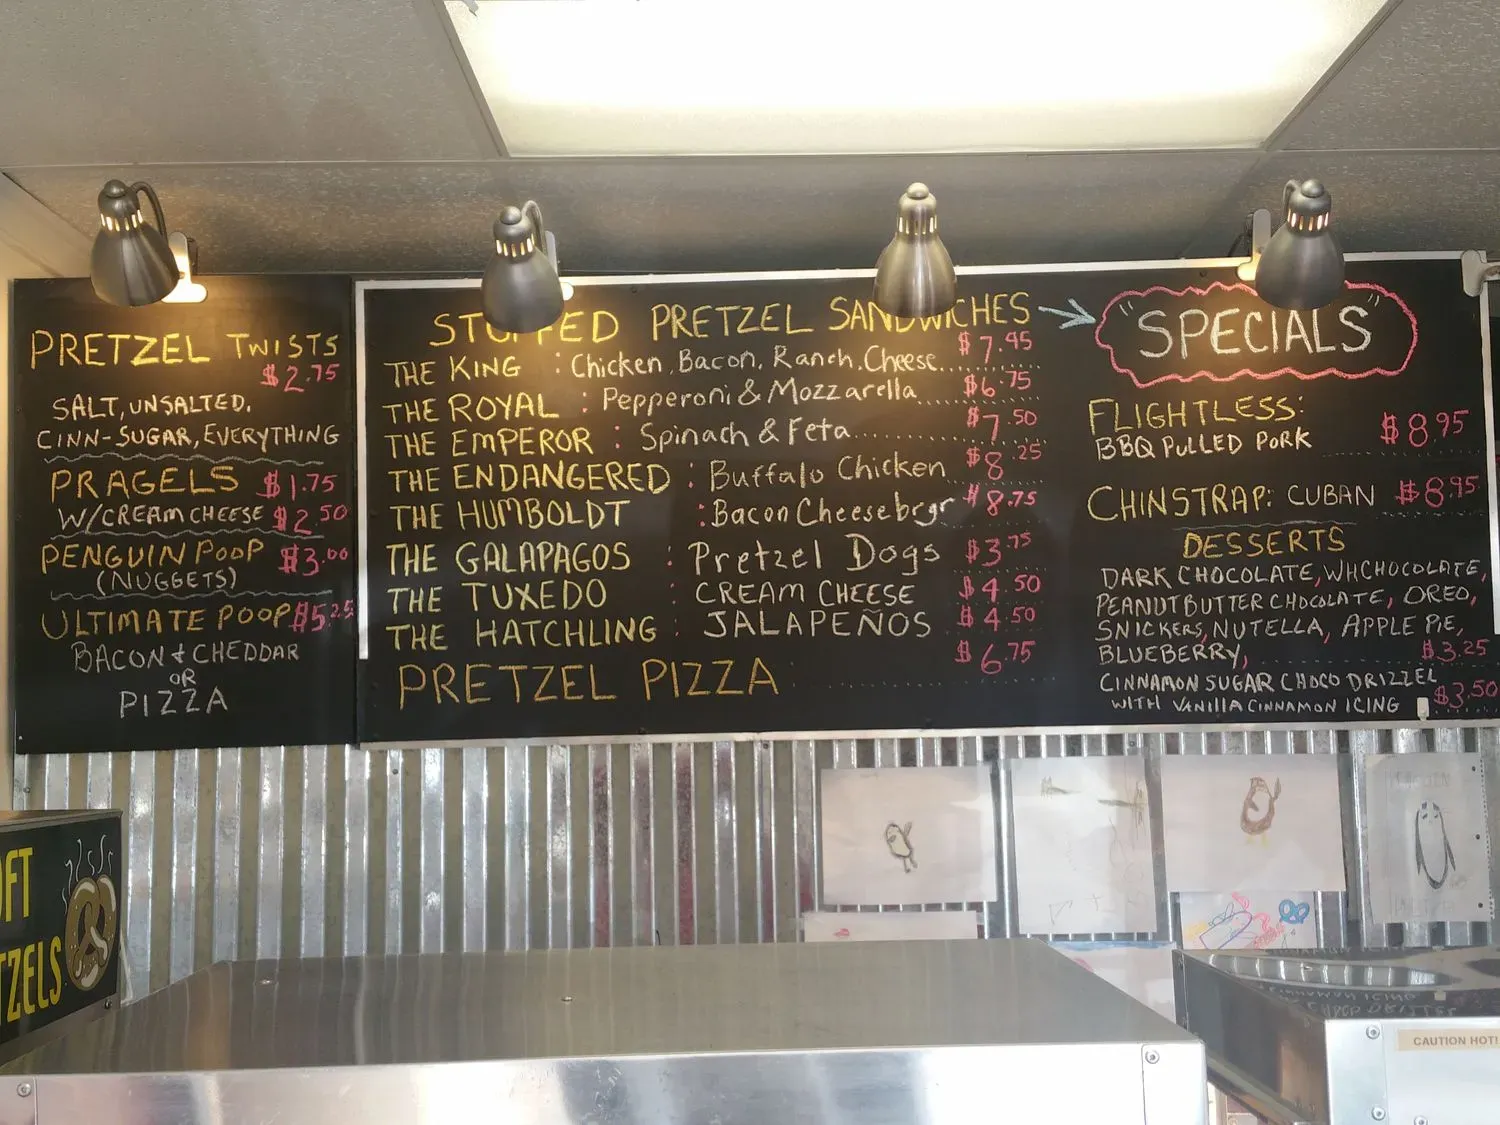 PRETZEL TWISTS
$2.75
SALT, UNSALTED,
CINN-SUGAR, EVERYTHING
PRAGELS $1.75
W/CREAM CHEESE $2.50
PENGUIN POOP $3.00
(NUGGETS)
ULTIMATE POOP $5.25
BACON & CHEDDAR
OR
PIZZA
STUFFED PRETZEL SANDWICHES
THE KING : Chicken, Bacon, Ranch, Cheese $7.95
THE ROYAL : Pepperoni & Mozzarella $6.75
THE EMPEROR : Spinach & Feta $7.50
THE ENDANGERED : Buffalo Chicken $8.25
THE HUMBOLDT : Bacon Cheesebrgr $8.75
THE GALAPAGOS : Pretzel Dogs $3.75
THE TUXEDO : CREAM CHEESE $4.50
THE HATCHLING : JALAPEÑOS $4.50
PRETZEL PIZZA $6.75
"SPECIALS"
FLIGHTLESS:
BBQ PULLED PORK $8.95
CHINSTRAP: CUBAN $8.95
DESSERTS
DARK CHOCOLATE, WHCHOCOLATE,
PEANUT BUTTER CHOCOLATE, OREO,
SNICKERS, NUTELLA, APPLE PIE,
BLUEBERRY, $3.25
CINNAMON SUGAR CHOCO DRIZZEL
WITH VANILLA CINNAMON ICING $3.50
CAUTION HOT!